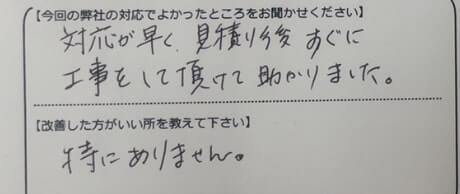 【今回の弊社の対応でよかったところをお聞かせください】
対応が早く、見積り後すぐに
工事をして頂けて助かりました。
【改善した方がいい所を教えて下さい】
特にありません。